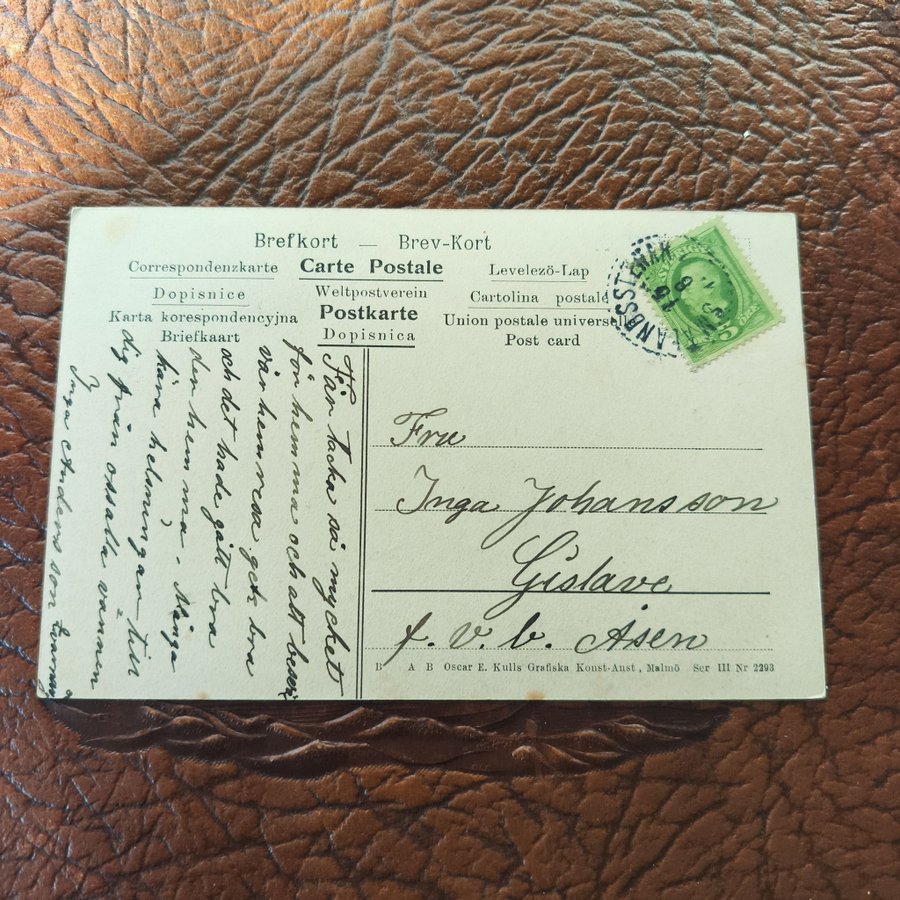 Brefkort — Brev-Kort
Correspondenzkarte Carte Postale Levelező-Lap
Dopisnice Weltpostverein Cartolina postale
Karta korespondencyjna Postkarte Union postale universelle
Briefkaart Dopisnica Post card
5
Fru
Inga Johansson
Gislave
f. v. b. Åsen
B A B Oscar E. Kulls Grafiska Konst-Anst, Malmö Ser III Nr 2293
Får tacka så mycket
för hemma och att
vän hemresa bra
och det hade gått bra
den hemma. Många
kära helsningar till
dig från vännen
Inga Andersson